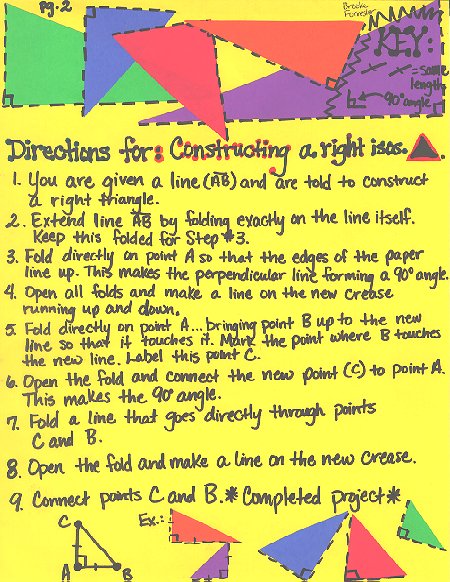 Pg. 2
Brooke
Forrester
KEY:
= same
length
90° angle
Directions for: Constructing a right isos.
1. You are given a line (AB) and are told to construct
a right triangle.
2. Extend line AB by folding exactly on the line itself.
Keep this folded for Step #3.
3. Fold directly on point A so that the edges of the paper
line up. This makes the perpendicular line forming a 90° angle.
4. Open all folds and make a line on the new crease
running up and down.
5. Fold directly on point A... bringing point B up to the new
line so that it touches it. Mark the point where B touches
the new line. Label this point C.
6. Open the fold and connect the new point (C) to point A.
This makes the 90° angle.
7. Fold a line that goes directly through points
C and B.
8. Open the fold and make a line on the new crease.
9. Connect points C and B. *Completed project*
C
Ex.:
A
B